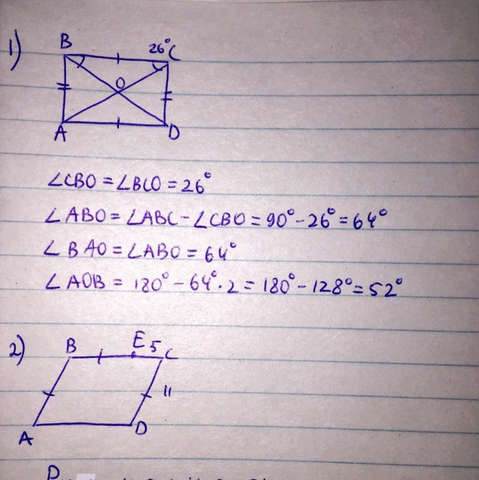 1)
B 26° C
O
A D
∠CBO = ∠BCO = 26°
∠ABO = ∠ABC - ∠CBO = 90° - 26° = 64°
∠BAO = ∠ABO = 64°
∠AOB = 180° - 64° · 2 = 180° - 128° = 52°
2) B E 5 C
11
A D
P